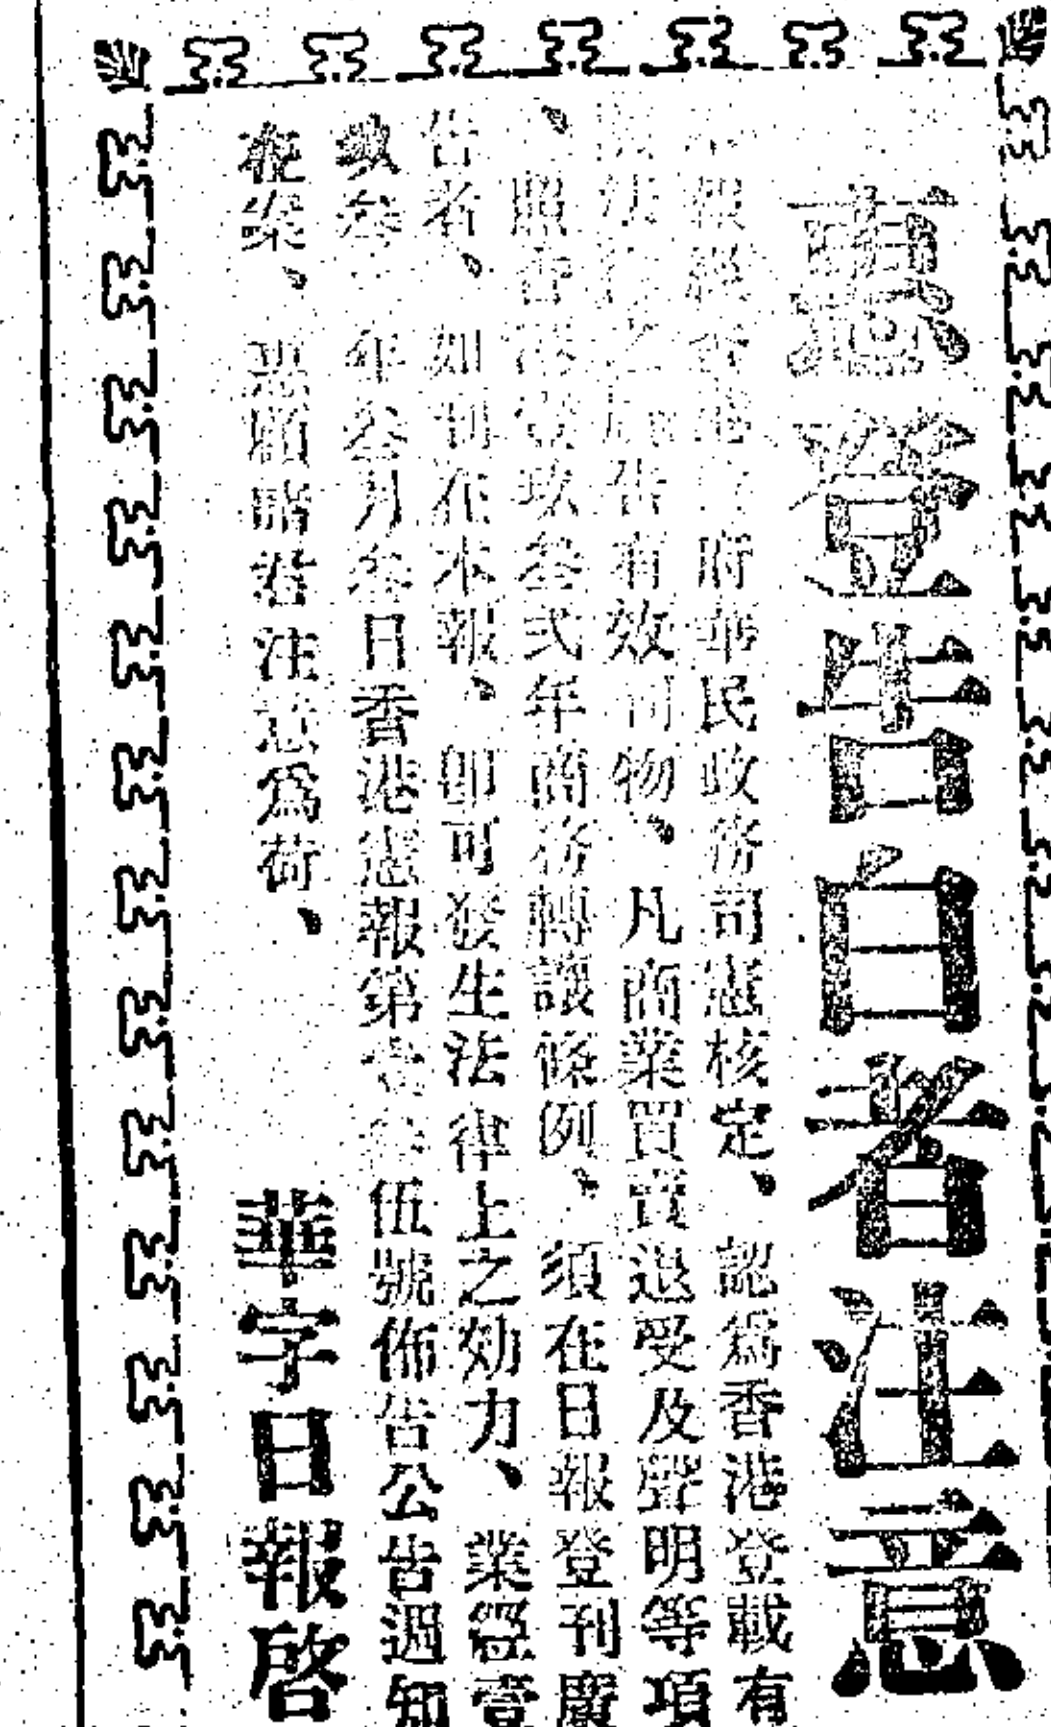 惠登告白者注意
報經香港 府華民政務司憲核定、認爲香港登載有
法 之廣告有效刊物、凡商業買賣退受及聲明等項
、照香港 玖叁式年商務轉讓條例、須在日報登刊廣
告者、如刊在本報、卽可發生法律上之効力、業經壹
玖叁 年叁月叁日香港憲報第 伍號佈告公告週知
在案、惠顧諸君注意爲荷、
華字日報啓